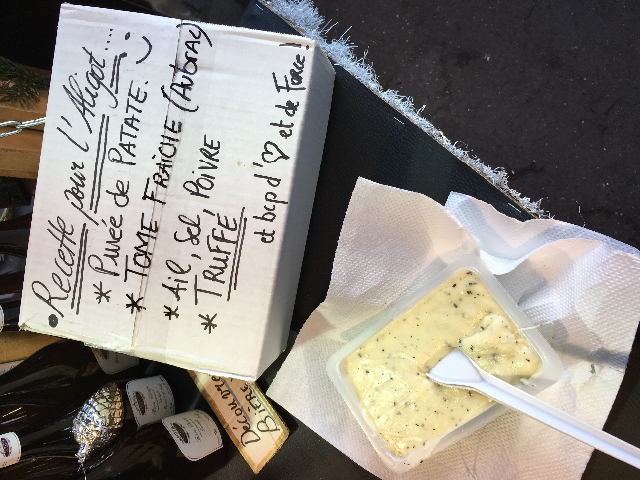 • Recette pour l'Aligot....
* Purée de PATATE.
* TOME FRAICHE (AUBRAC)
* Ail, Sel, POIVRE
* TRUFFE,
et bcp d'♡ et de Force!
Découvrez
BIÈRE